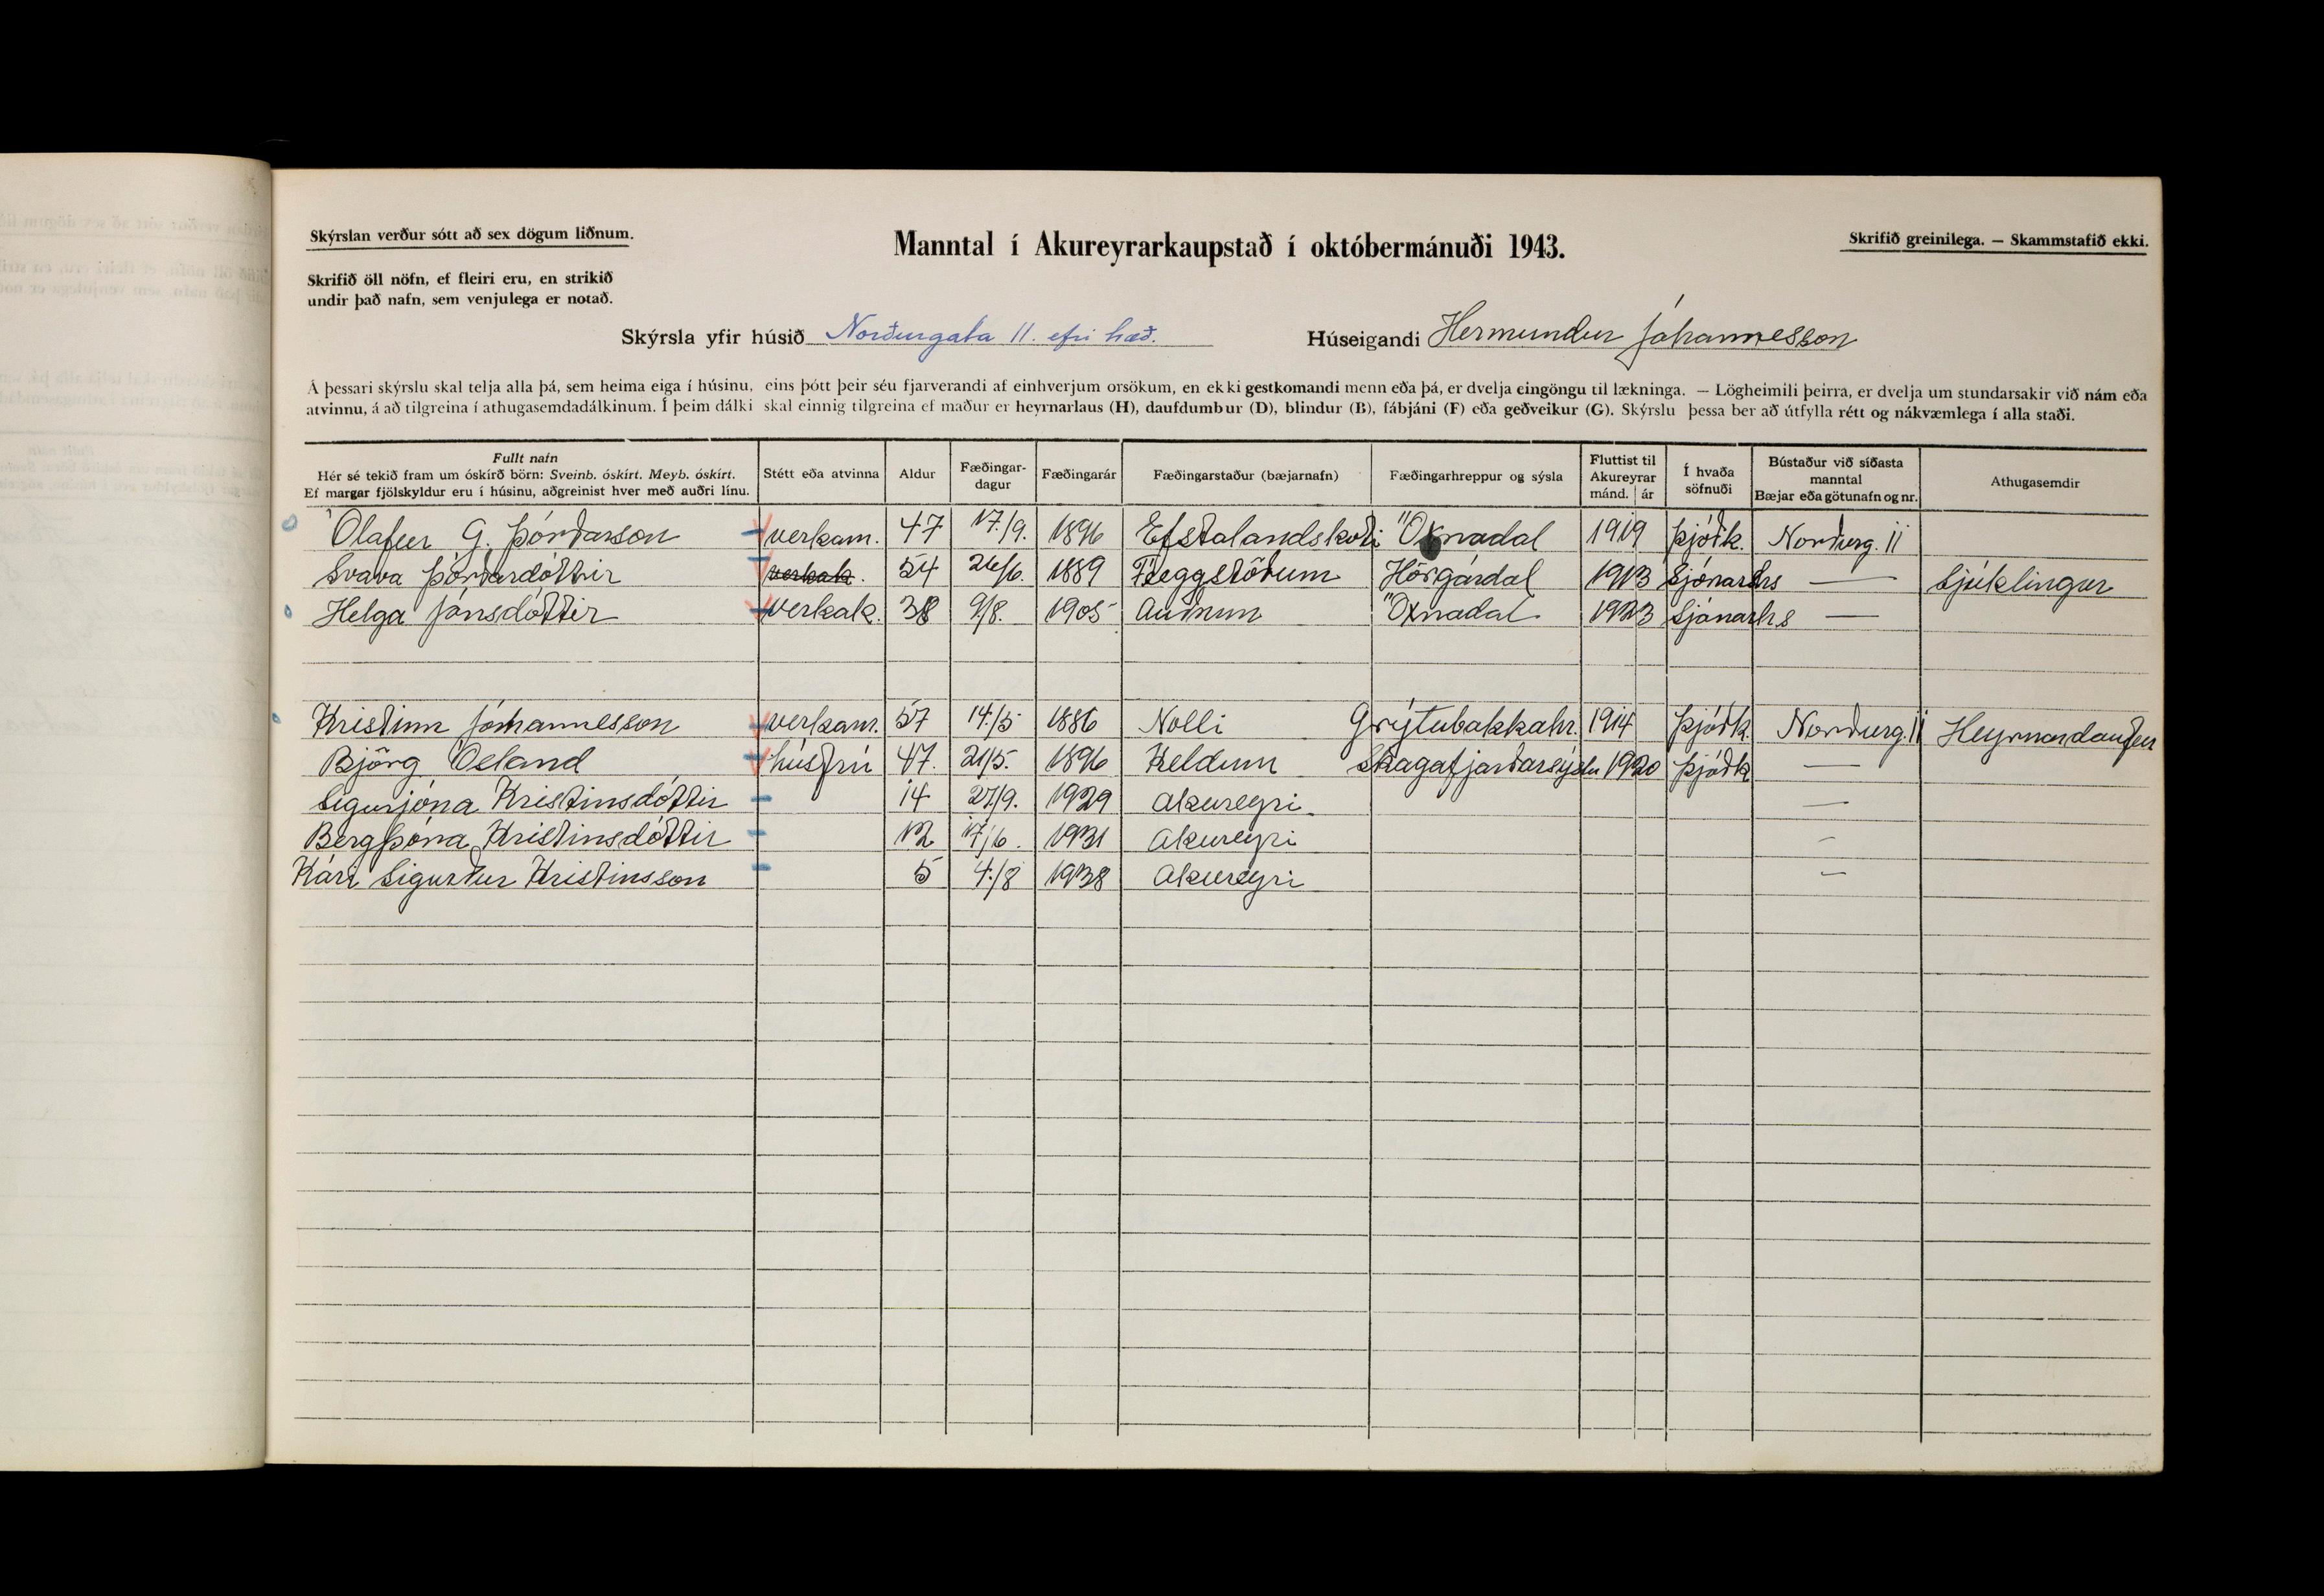 Skýrslan verður sótt að sex dögum liðnum.
Manntal í Akureyrarkaupstað í októbermánuði 1943.
Skrifið greinilega. — Skammstafið ekki.
Skrifið öll nöfn, ef fleiri eru, en strikið
undir það nafn, sem venjulega er notað.
Skýrsla yfir húsið Norðurgata 11. efri hæð. Húseigandi Hermundur Jóhannesson
Á þessari skýrslu skal telja alla þá, sem heima eiga í húsinu, eins þótt þeir séu fjarverandi af einhverjum orsökum, en ekki gestkomandi menn eða þá, er dvelja eingöngu til lækninga. — Lögheimili þeirra, er dvelja um stundarsakir við nám eða
atvinnu, á að tilgreina í athugasemdadálkinum. Í þeim dálki skal einnig tilgreina ef maður er heyrnarlaus (H), daufdumbur (D), blindur (B), fábjáni (F) eða geðveikur (G). Skýrslu þessa ber að útfylla rétt og nákvæmlega í alla staði.
Fullt nafn
Hér sé tekið fram um óskírð börn: Sveinb. óskírt. Meyb. óskírt.
Ef margar fjölskyldur eru í húsinu, aðgreinist hver með auðri línu.
Stétt eða atvinna
Aldur
Fæðingar-
dagur
Fæðingarár
Fæðingarstaður (bæjarnafn)
Fæðingarhreppur og sýsla
Fluttist til
Akureyrar
mánd. ár
Í hvaða
söfnuði
Bústaður við síðasta
manntal
Bæjar eða götunafn og nr.
Athugasemdir
Ólafur G. Þórðarson verkam. 47 17./9. 1896 Efstalandskoti Öxnadal 1919 Þjóðk. Norðurg. 11
Svava Þórðardóttir verkak. 54 26/6. 1889 Flöggstöðum Hörgárdal 1913 Sjónarhs — Sjúklingur
Helga Jónsdóttir verkak. 38 9/8. 1905 Auðnum Öxnadal 1923 Sjónarhs —
Kristinn Jóhannesson verkam. 57 14./5 1886 Nolli Grýtubakkahr. 1914 Þjóðk. Norðurg. 11 Heyrnardaufur
Björg Ósland húsfrú 47. 21/5. 1896 Keldum Skagafjarðarsýslu 1920 Þjóðk —
Sigurjóna Kristinsdóttir 14 27/9. 1929 Akureyri —
Bergþóra Kristinsdóttir 12 17/6. 1931 Akureyri —
Kári Sigurður Kristinsson 5 4./8 1938 Akureyri —